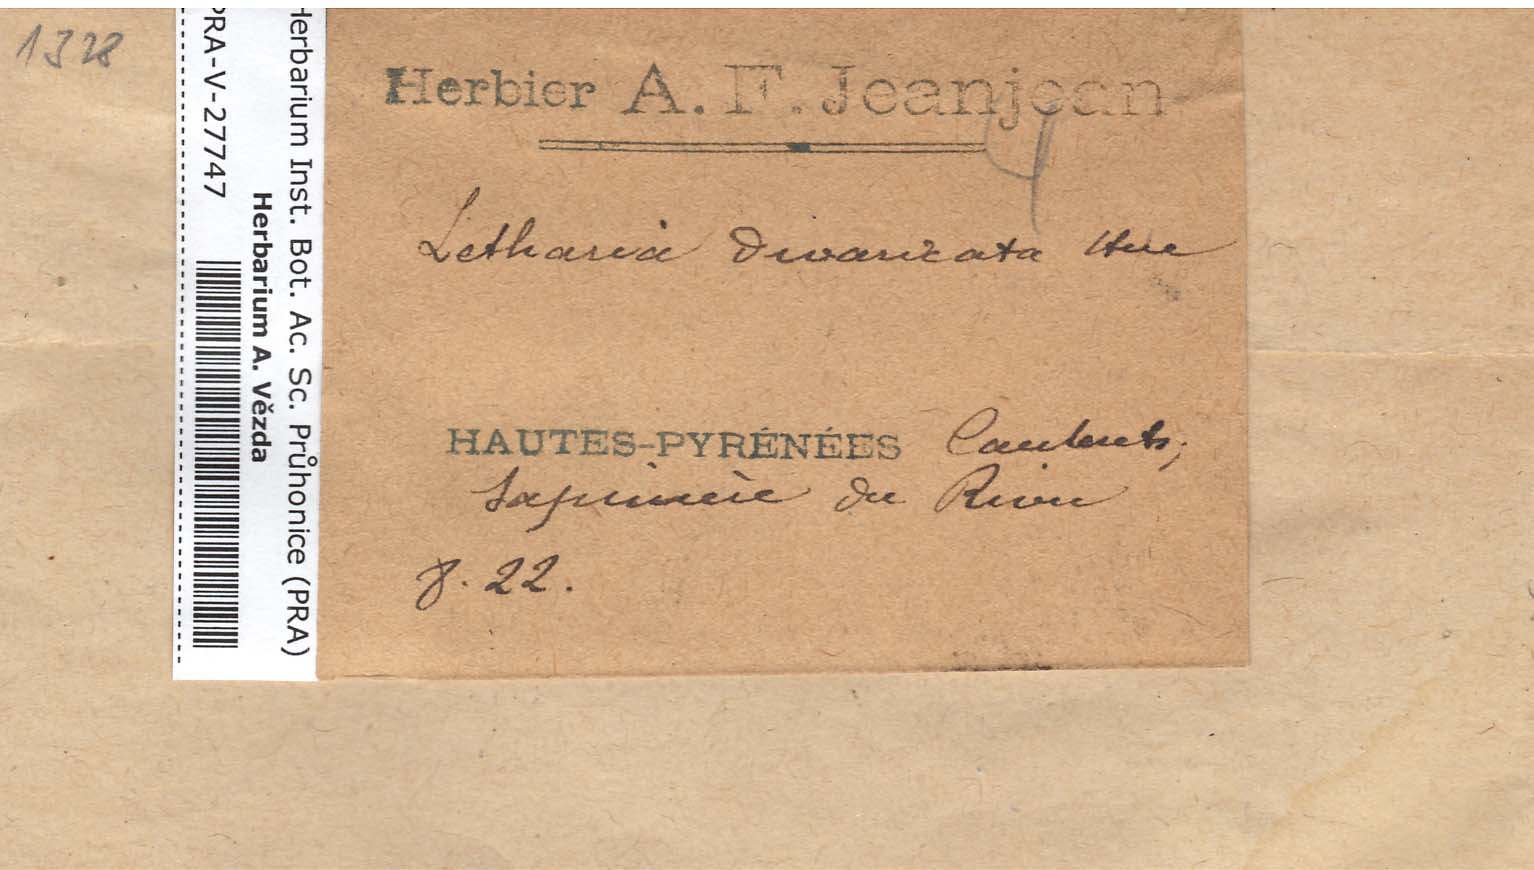 1328
PRA-V-27747
Herbarium Inst. Bot. Ac. Sc. Průhonice (PRA)
Herbarium A. Vězda
Herbier A. F. Jeanjean
Letharia divaricata Hue
HAUTES-PYRÉNÉES Cauterets,
Sapinière du Riou
8. 22.